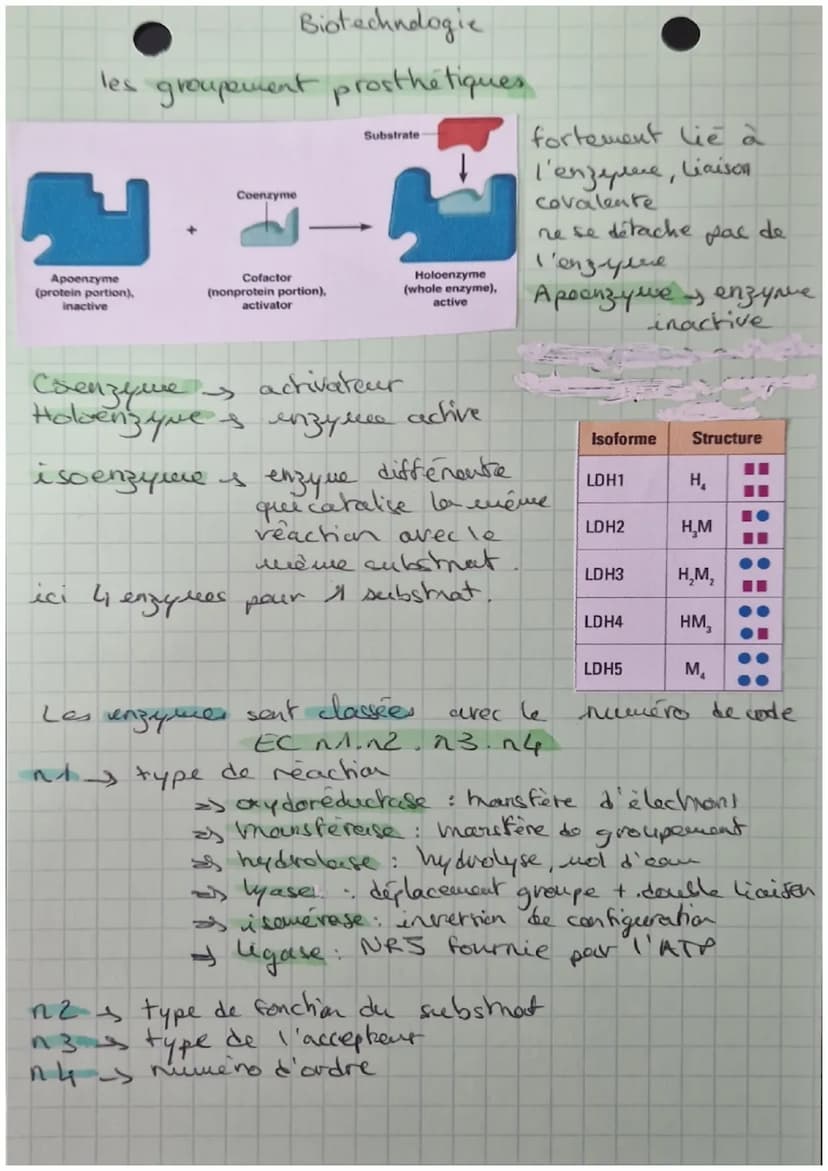 Biotechnologie
les groupement prosthétiques
Substrate
Coenzyme
+
Apoenzyme
(protein portion),
inactive
Cofactor
(nonprotein portion),
activator
Holoenzyme
(whole enzyme),
active
fortement lié à
l'enzyme, liaison
covalente
ne se détache pas de
l'enzyme
Apoenzyme → enzyme
inactive
Coenzyme → activateur
Holoenzyme → enzyme active
isoenzyme → enzyme différente
qui catalise la même
réaction avec le
même substrat.
ici 4 enzymes pour 1 substrat.
Isoforme Structure
LDH1 H₄
LDH2 H₃M
LDH3 H₂M₂
LDH4 HM₃
LDH5 M₄
Les enzymes sont classées avec le numéro de code
EC n1.n2.n3.n4
n1 → type de réaction
⇒ oxydoréductase : transfère d'électrons
⇒ transférase : transfère de groupement
⇒ hydrolase : hydrolyse, mol d'eau
⇒ lyase : déplacement groupe + double liaison
⇒ isomérase : inversion de configuration
⇒ ligase : NRJ fournie par l'ATP
n2 → type de fonction du substrat
n3 → type de l'accepteur
n4 → numéro d'ordre